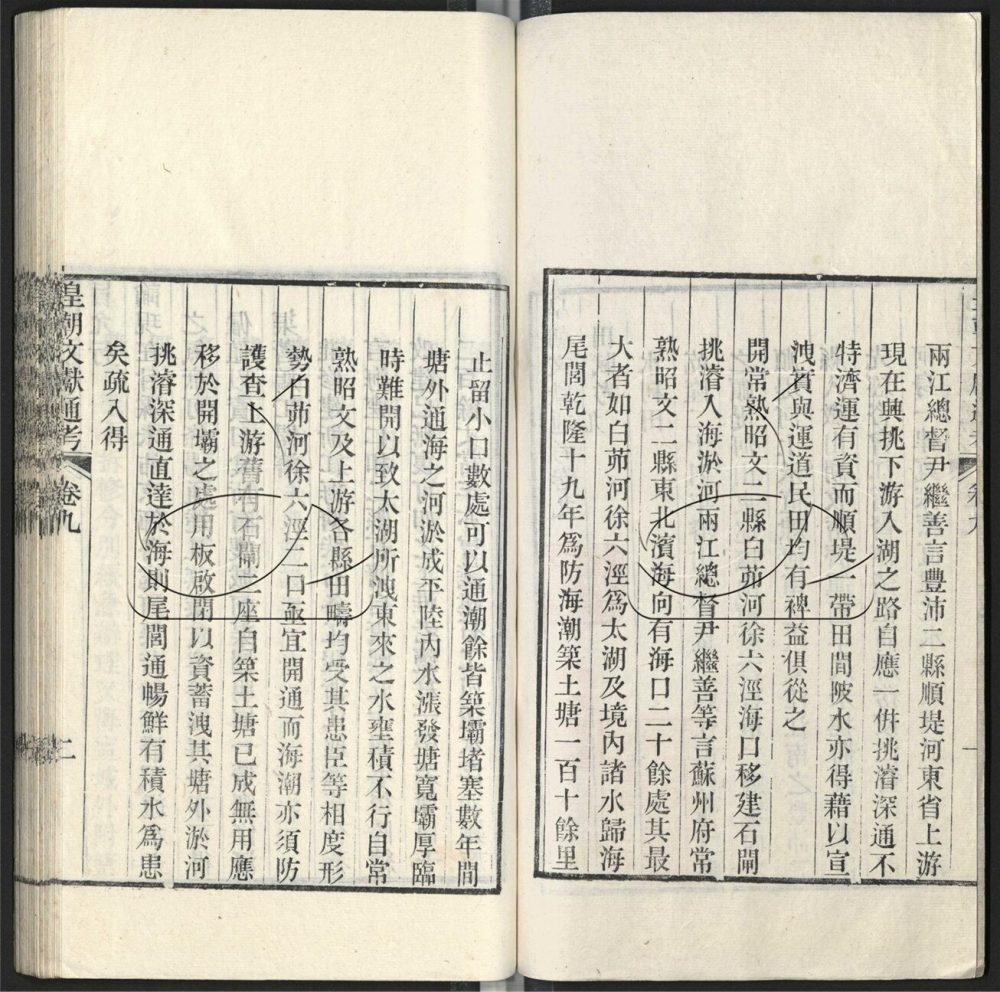 兩江總督尹繼善言豐沛二縣順堤河東省上游
現在興挑下游入湖之路自應一倂挑濬深通不
特濟運有資而順堤一帶田間陂水亦得藉以宣
洩實與運道民田均有裨益俱從之
開常熟昭文二縣白茆河徐六涇海口移建石閘
挑濬入海淤河兩江總督尹繼善等言蘇州府常
熟昭文二縣東北濱海向有海口二十餘處其最
大者如白茆河徐六涇爲太湖及境內諸水歸海
尾閭乾隆十九年爲防海潮築土塘一百十餘里
止留小口數處可以通潮餘皆築壩堵塞數年間
塘外通海之河淤成平陸內水漲發塘寬壩厚臨
時難開以致太湖所洩東來之水壅積不行自常
熟昭文及上游各縣田疇均受其患臣等相度形
勢白茆河徐六涇二口亟宜開通而海潮亦須防
護查上游舊有石閘二座自築土塘已成無用應
移於開壩之處用板啟閉以資蓄洩其塘外淤河
挑濬深通直達於海則尾閭通暢鮮有積水爲患
矣疏入得
皇朝文獻通考 卷九 二